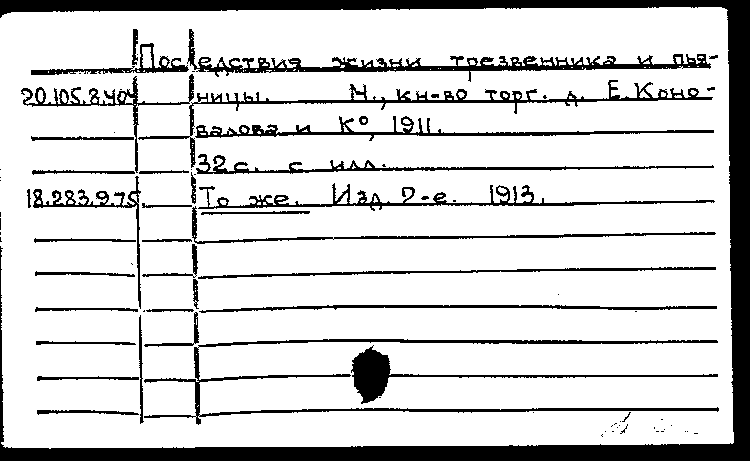 Последствия жизни трезвенника и пья-
20.105.8.404. ницы. М., кн-во торг. д. Е. Коно-
валова и К°, 1911.
32 с. с илл.
18.283.9.75. То же. Изд. 2-е. 1913.